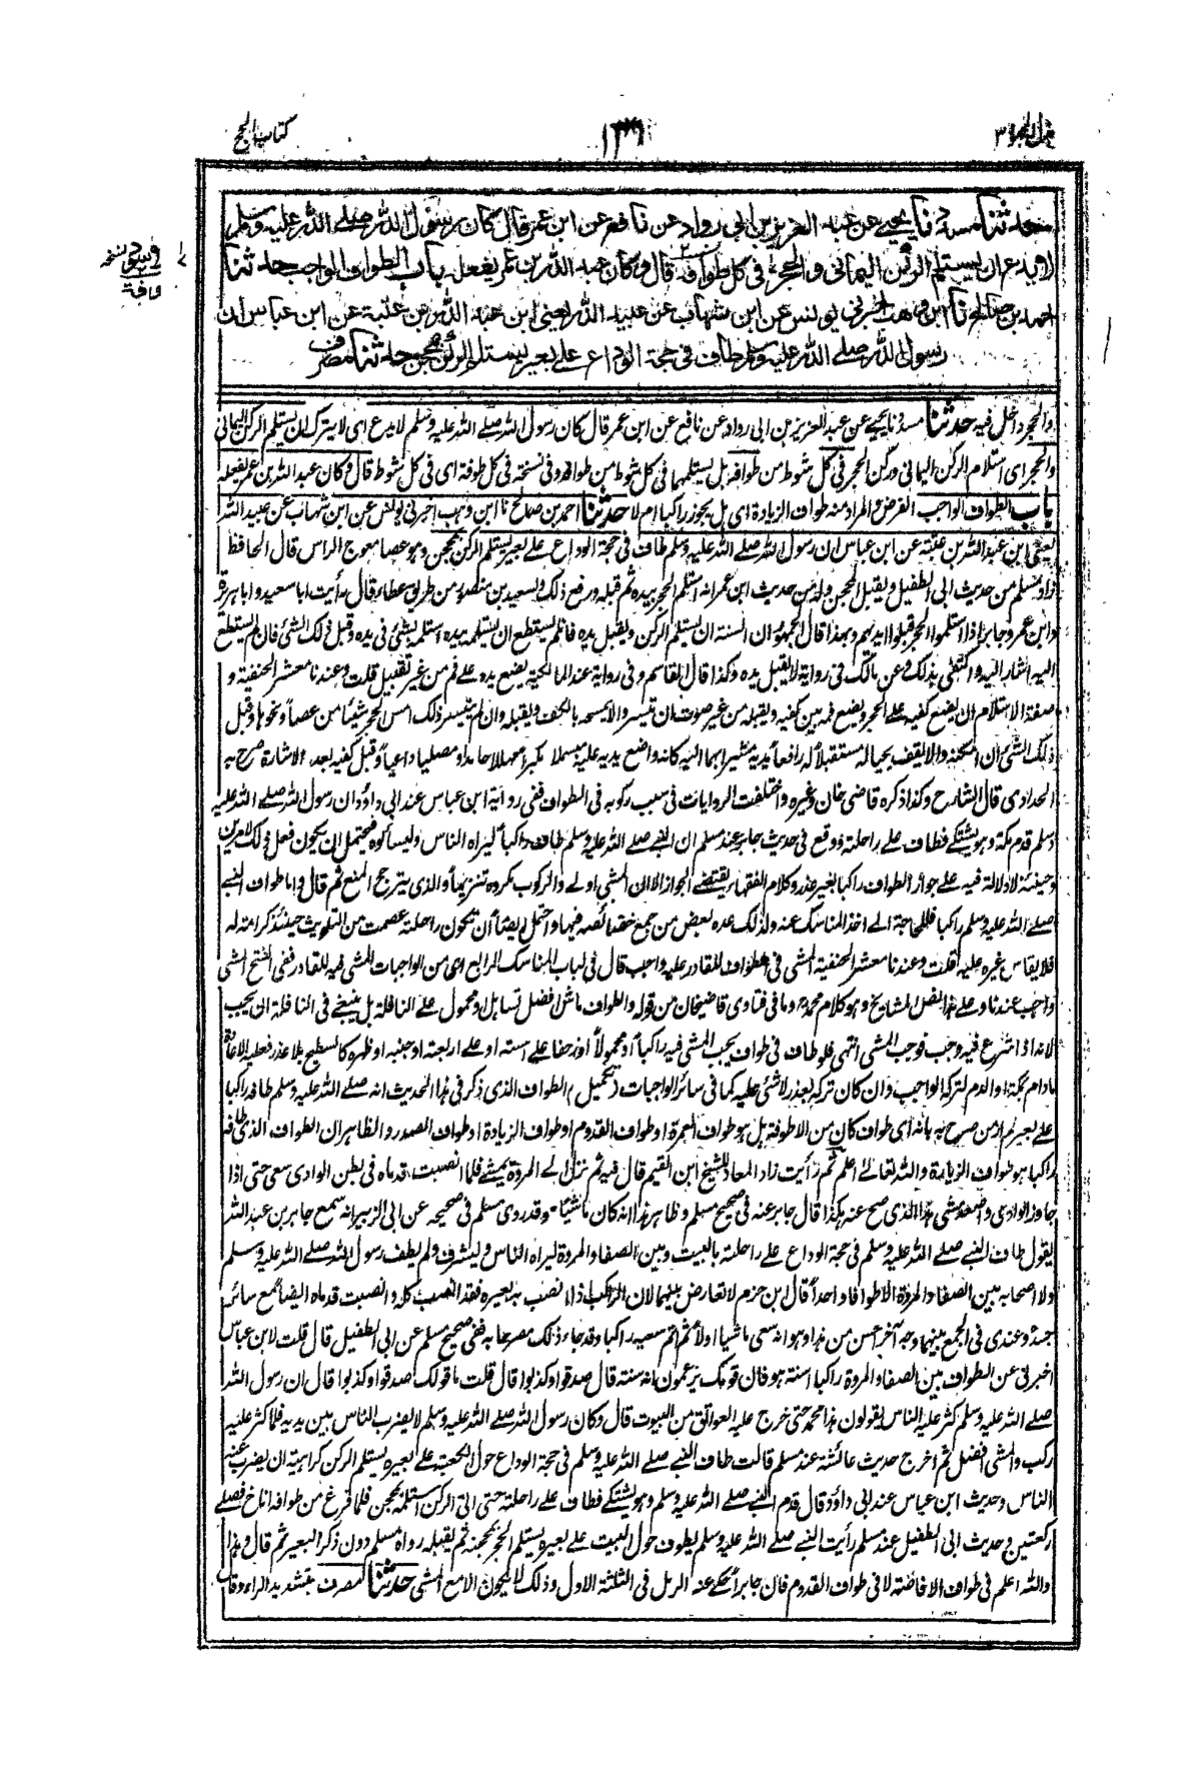 بذل المجهود ٣
١٣٦
كتاب الحج
حدثنا مسدد نا يحيى عن عبد العزيز بن ابى رواد عن نافع عن ابن عمر قال كان رسول الله صلے الله عليه وسلم
لا يدع ان يستلم الركن اليمانى والحجر فى كل طوافه قال وكان عبد الله بن عمر يفعله باب الطواف الواجب حدثنا
احمد بن صالح نا ابن وهب اخبرنى يونس عن ابن شهاب عن عبيد الله يعنى ابن عبد الله بن عتبة عن ابن عباس ان
رسول الله صلے الله عليه وسلم طاف فى حجة الوداع على بعير يستلم الركن بمحجن حدثنا مصرف
والحجر داخل فيه حدثنا مسدد نا يحيى عن عبد العزيز بن ابى رواد عن نافع عن ابن عمر قال كان رسول الله صلے الله عليه وسلم لا يدع اى لا يترك ان يستلم الركن اليمانى
والحجر اى استلام الركن اليمانى وركن الحجر فى كل شوط من طوافه بل يستلمها فى كل شوط من طوافه وفى نسخة فى كل طوفة اى فى كل شوط قال وكان عبد الله بن عمر يفعله
باب الطواف الواجب الفرض والمراد منه طواف الزيادة اى بل يجوز راكبا ام لا حدثنا احمد بن صالح نا ابن وهب اخبرنى يونس عن ابن شهاب عن عبيد الله
يعنى ابن عبد الله بن عتبة عن ابن عباس ان رسول الله صلے الله عليه وسلم طاف فى حجة الوداع على بعير يستلم الركن بمحجن وهو عصا معوج الراس قال الحافظ
زاد مسلم من حديث ابى الطفيل ويقبل المحجن وله من حديث ابن عمر انه استلم الحجر بيده ثم قبله ورفع ذلك ولسعيد بن منصور من طريق عطاء قال رأيت ابا سعيد وابا هريرة
وابن عمر وجابرا اذا استلموا الحجر قبلوا ايديهم وبهذا قال الجمهور ان السنة ان يستلم الركن ويقبل يده فان لم يستطع ان يستلمه بيده استلمه بشئ فى يده وقبل ذلك الشئ فان لم يستطع
اليه اشار اليه واكتفى بذلك وعن مالك فى رواية لا يقبل يده وكذا قال القاسم وفى رواية عند المالكية يضع يده على فمه من غير تقبيل قلت وعندنا معشر الحنفية و
صفة الاستلام ان يضع كفيه على الحجر ويضع فمه بين كفيه ويقبله من غير صوت ان تيسر والا يمسحه بالكف ويقبله وان لم يتيسر ذلك امس الحجر شيئا من عصا ونحوها وقبل
ذلك الشئ ان امكنه والا يقف بحياله مستقبلا له رافعا يديه مشيرا بهما اليه كانه واضع يديه عليه مبسملا مكبرا مهللا حامدا ومصليا وداعيا وقبل كفيه بعد الاشارة صرح به
الحدادى قال الشارح وكذا ذكره قاضى خان وغيره واختلفت الروايات فى سبب ركوبه فى الطواف ففى رواية ابن عباس عند ابى داؤد ان رسول الله صلے الله عليه
وسلم قدم مكة وهو يشتكى فطاف على راحلته ووقع فى حديث جابر عند مسلم ان النبى صلے الله عليه وسلم طاف راكبا ليراه الناس وليسألوه فيحتمل ان يكون فعل ذلك لامرين
وحينئذ لا دلالة فيه على جواز الطواف راكبا بغير عذر وكلام الفقهاء يقتضى الجواز الا ان المشى اولى والركوب مكروه تنزيها والذى يترجح المنع ثم قال واما طواف النبى
صلے الله عليه وسلم راكبا فللحاجة الى اخذ المناسك عنه ولذلك عده بعض من جمع خصائصه فيها واحتمل ايضا ان تكون راحلته عصمت من التلويث حينئذ كرامة له
فلا يقاس غيره عليه قلت وعندنا معشر الحنفية المشى فى الطواف للقادر عليه واجب قال فى لباب المناسك الرابع اى من الواجبات المشى فيه للقادر ففى الفتح المشى
واجب عندنا وعلى هذا نص المشايخ وهو كلام محمد وما فى فتاوى قاضيخان من قوله والطواف ماشيا افضل تساهل او محمول على النافلة بل ينبغى فى النافلة ان يجب
لانه اذا شرع فيه وجب فوجب المشى انتهى فلو طاف فى طواف يجب المشى فيه راكبا او محمولا او زحفا على استه او على اربعته او جنبه او ظهره كالسطيح بلا عذر فعليه الاعادة
ما دام بمكة او الدم لتركه الواجب وان كان تركه بعذر لا شئ عليه كما فى سائر الواجبات (تكميل) الطواف الذى ذكر فى هذا الحديث انه صلے الله عليه وسلم طافه راكبا
على بعير لم ار من صرح به بانه اى طواف كان من الاطوفة بل هو طواف العمرة او طواف القدوم او طواف الزيادة او طواف الصدر والظاهر ان الطواف الذى طافه
راكبا هو طواف الزيادة والله تعالى اعلم ثم رأيت زاد المعاد للشيخ ابن القيم قال فيه ثم نزل الى المروة يمشى فلما انصبت قدماه فى بطن الوادى سعى حتى اذا
جاوز الوادى واصعد مشى هذا الذى صح عنه هكذا قال جابر عنه فى صحيح مسلم وظاهر هذا انه كان ماشيا وقد روى مسلم فى صحيحه عن ابى الزبير انه سمع جابر بن عبد الله
يقول طاف النبى صلے الله عليه وسلم فى حجة الوداع على راحلته بالبيت وبين الصفا والمروة ليراه الناس وليشرف ولم يطف رسول الله صلے الله عليه وسلم
ولا اصحابه بين الصفا والمروة الا طوافا واحدا قال ابن حزم لا تعارض بينهما لان الراكب اذا انصب به بعيره فقد انصب كله وانصبت قدماه ايضا مع سائر
جسده وعندى فى الجمع بينهما وجه آخر احسن من هذا وهو انه سعى ماشيا اولا ثم اتم سعيه راكبا وقد جاء ذلك مصرحا به ففى صحيح مسلم عن ابى الطفيل قال قلت لابن عباس
اخبرنى عن الطواف بين الصفا والمروة راكبا اسنة هو فان قومك يزعمون انه سنة قال صدقوا وكذبوا قال قلت ما قولك صدقوا وكذبوا قال ان رسول الله
صلے الله عليه وسلم كثر عليه الناس يقولون هذا محمد حتى خرج عليه العواتق من البيوت قال وكان رسول الله صلے الله عليه وسلم لا يضرب الناس بين يديه فلما كثر عليه
ركب والمشى افضل ثم اخرج حديث عائشة عند مسلم قالت طاف النبى صلے الله عليه وسلم فى حجة الوداع حول الكعبة على بعيره يستلم الركن كراهية ان يضرب عنه
الناس وحديث ابن عباس عند ابى داؤد قال قدم النبى صلے الله عليه وسلم وهو يشتكى فطاف على راحلته حتى اتى الركن استلمه بمحجن فلما فرغ من طوافه اناخ فصلى
ركعتين وحديث ابى الطفيل عند مسلم رأيت النبى صلے الله عليه وسلم يطوف حول البيت على بعيره يستلم الحجر بمحجنه ثم يقبله رواه مسلم دون ذكر البعير ثم قال وهذا
والله اعلم فى طواف الافاضة لا فى طواف القدوم فان جابرا حكى عنه الرمل فى الثلثة الاول وذلك لا يكون الا مع المشى حدثنا مصرف بتشديد الراء وقاف